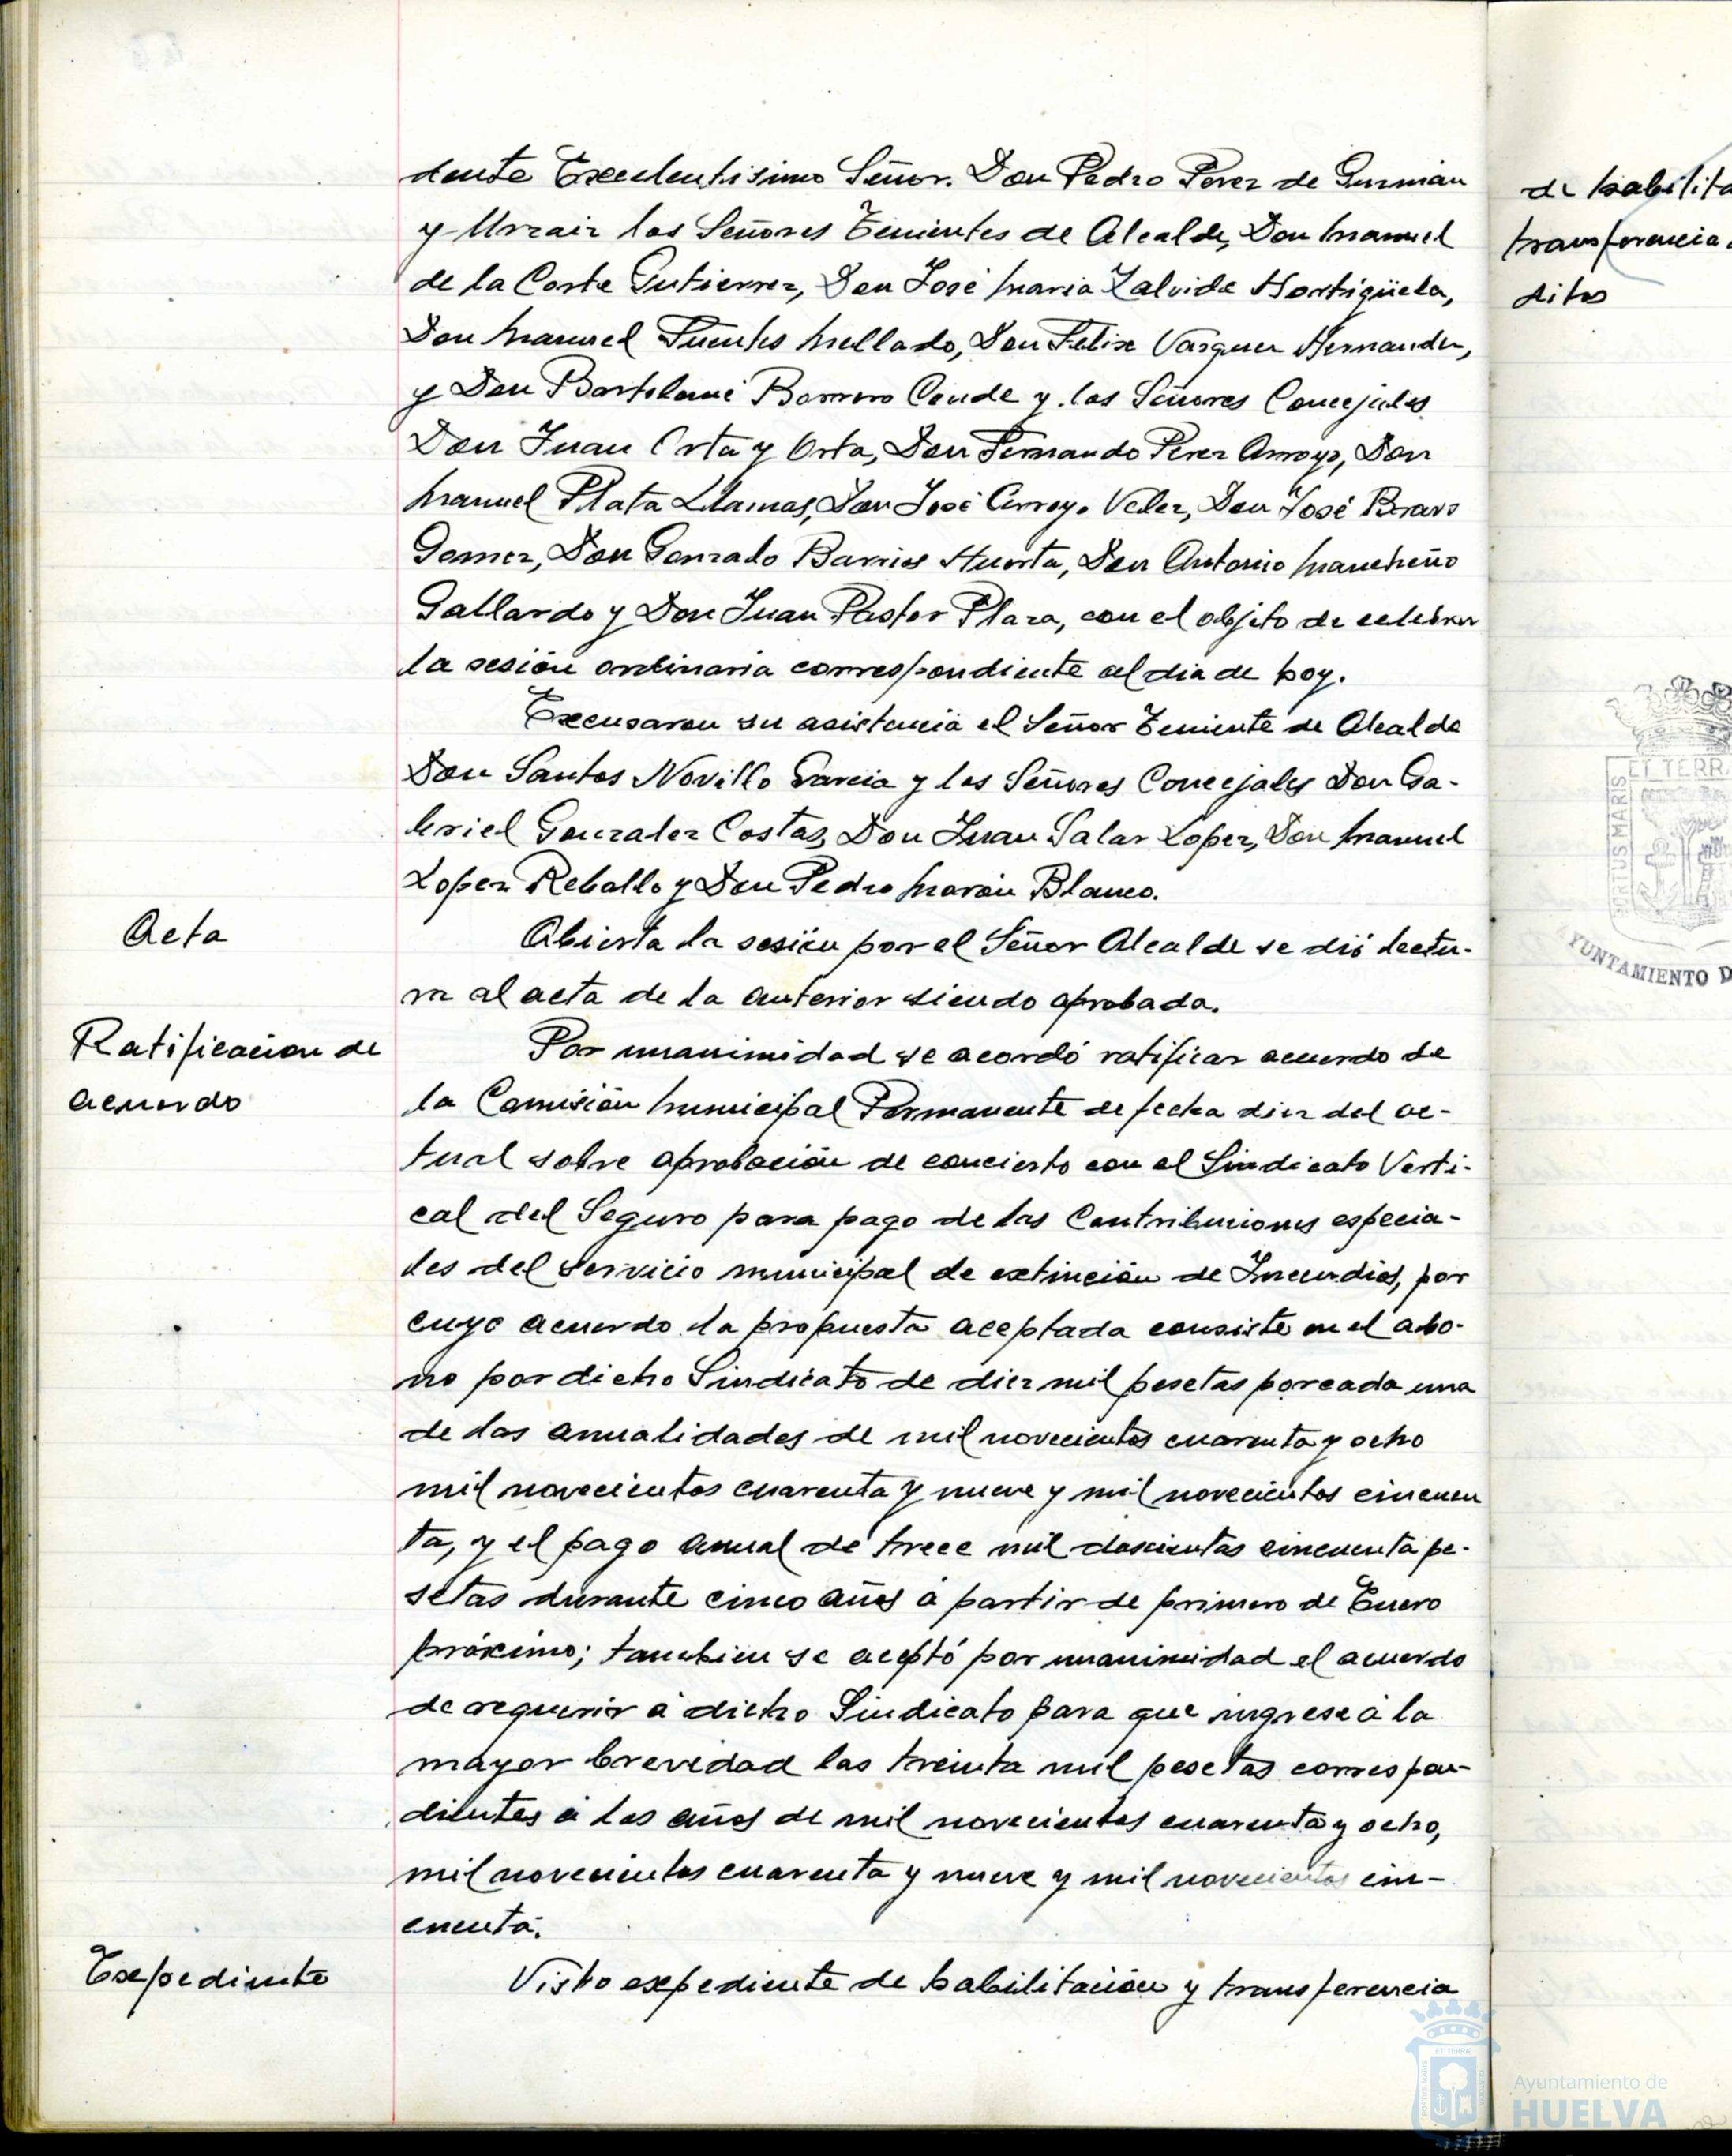 dente Excelentisimo Señor. Don Pedro Perez de Guzmán
y Urzaiz los Señores Tenientes de Alcalde, Don Manuel
de la Corte Gutierrez, Don José Maria Zalvide Hortigüela,
Don Manuel Fuentes Mellado, Don Felix Vazquez Hernandez,
y Don Bartolomé Borrero Conde y los Señores Concejales
Don Juan Orta y Orta, Don Fernando Perez Arroyo, Don
Manuel Plata Llamas, Don José Arroyo Velez, Don José Bravo
Gomez, Don Gonzalo Barrios Huerta, Don Antonio Mancheño
Gallardo y Don Juan Pastor Plaza, con el objeto de celebrar
la sesión ordinaria correspondiente al dia de hoy.
Excusaron su asistencia el Señor Teniente de Alcalde
Don Santos Novillo Garcia y los Señores Concejales Don Ga-
briel Gonzalez Costas, Don Juan Salar Lopez, Don Manuel
Lopez Reballo y Don Pedro Marón Blanco.
Acta
Abierta la sesión por el Señor Alcalde se dió lectu-
ra al acta de la anterior siendo aprobada.
Ratificación de
acuerdo
Por unanimidad se acordó ratificar acuerdo de
la Comisión Municipal Permanente de fecha diez del ac-
tual sobre aprobación de concierto con el Sindicato Verti-
cal del Seguro para pago de las Contribuciones especia-
les del servicio municipal de extinción de Incendios, por
cuyo acuerdo la propuesta aceptada consiste en el abo-
no por dicho Sindicato de diez mil pesetas por cada una
de las anualidades de mil novecientos cuarenta y ocho
mil novecientos cuarenta y nueve y mil novecientos cincuen
ta, y el pago anual de trece mil doscientas cincuenta pe-
setas durante cinco años á partir de primero de Enero
próximo; tambien se aceptó por unanimidad el acuerdo
de requerir á dicho Sindicato para que ingrese á la
mayor brevedad las treinta mil pesetas correspon-
dientes á los años de mil novecientos cuarenta y ocho,
mil novecientos cuarenta y nueve y mil novecientos cin-
cuenta.
Expediente
Visto expediente de habilitación y transferencia
de habilita
transferencia
ditos
ET TERR
PORTUS MARIS
YUNTAMIENTO D
Ayuntamiento de
HUELVA